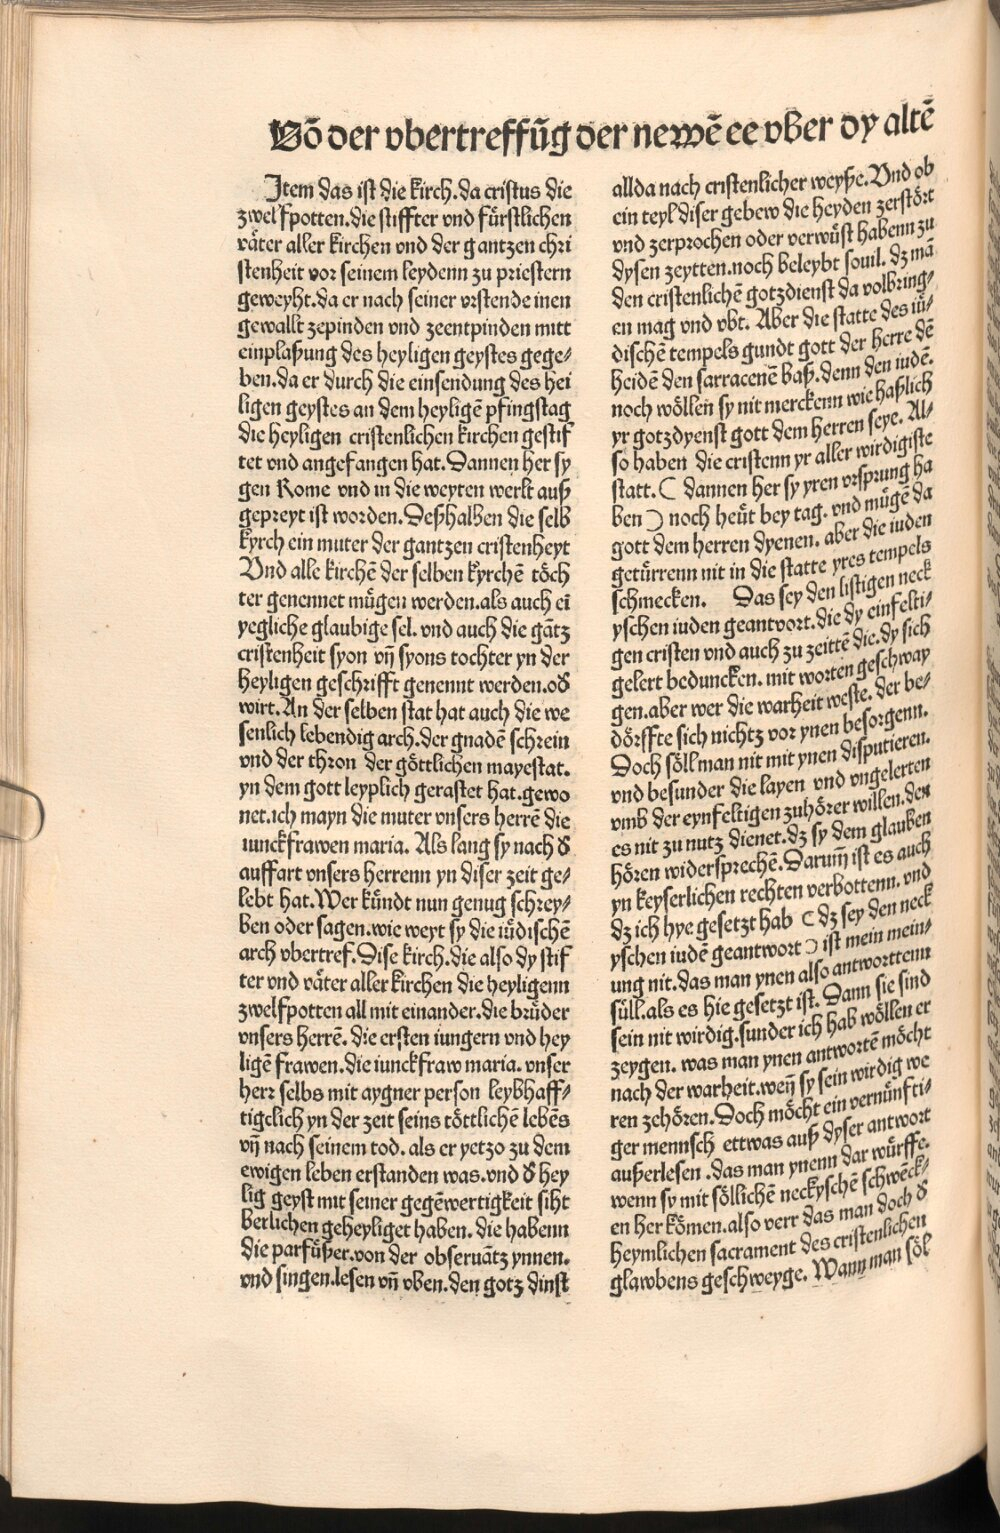 Võ der vbertreffũg der newẽ ee vber dy altẽ
Item das ist die kirch. da cristus die
zwelfpotten. die stiffter vnd fürstlichen
väter aller kirchen vnd der gantzen chri
stenheit vor seinem leydenn zu priestern
geweyht. da er nach seiner vrstende inen
gewallt zepinden vnd zeentpinden mitt
einplaßung des heyligen geystes gege⸗
ben. da er durch die einsendung des hei
ligen geystes an dem heyligẽ pfingstag
die heyligen cristenlichen kirchen gestif
tet vnd angefangen hat. Dannen her sy
gen Rome vnd in die weyten werlt auß
gepreyt ist worden. Deßhalben die selb
kyrch ein muter der gantzen cristenheyt
Vnd alle kirchẽ der selben kyrchẽ töch
ter genennet mügen werden. als auch eĩ
yegliche glaubige sel. vnd auch die gãtz
cristenheit syon vñ syons tochter yn der
heyligen geschrifft genennt werden. oď
wirt. An der selben stat hat auch die we
senlich lebendig arch. der gnadẽ schrein
vnd der thron der göttlichen mayestat.
yn dem gott leyplich gerastet hat. gewo
net. ich mayn die muter vnsers herrẽ die
iunckfrawen maria. Als lang sy nach ď
auffart vnsers herrenn yn diser zeit ge⸗
lebt hat. Wer kündt nun genug schrey⸗
ben oder sagen. wie weyt sy die iüdischẽ
arch vbertref. Dise kirch. die also dy stif
ter vnd väter aller kirchen die heyligenn
zwelfpotten all mit einander. die brüder
vnsers herrẽ. die ersten iungern vnd hey
ligẽ frawen. die iunckfraw maria. vnser
herr selbs mit aygner person leybhaff⸗
tigclich yn der zeit seins töttlichẽ lebẽs
vñ nach seinem tod. als er yetzo zu dem
ewigen leben erstanden was. vnd ď hey
lig geyst mit seiner gegẽwertigkeit siht
berlichen geheyliget haben. die habenn
die parfüßer. von der obseruãtz ynnen.
vnd singen. lesen vñ vben. den gotz dinst
allda nach cristenlicher weyße. Vnd ob
ein teyl diser gebew die heyden zerstört
vnd zerprochen oder verwüst habenn zu
dysen zeytten. noch beleybt souil. dz mã
den cristenlichẽ gotzdienst da volbring⸗
en mag vnd vbt. Aber die statte des iü⸗
dischẽ tempels gundt gott der herre dẽ
heidẽ den sarracenẽ baß. denn den iudẽ.
noch wöllen sy nit merckenn wie haßlich
yr gotzdyenst gott dem herren seye. Al⸗
so haben die cristenn yr aller wirdigiste
statt. ( dannen her sy yren vrsprung ha
ben ) noch heüt bey tag. vnd mügẽ da
gott dem herren dyenen. aber die iuden
getürrenn nit in die statte yres tempels
schmecken. Das sey den listigen neck
yschen iuden geantvort. die dy einfelti⸗
gen cristen vnd auch zu zeittẽ die. dy sich
gelert beduncken. mit worten geschway
gen. aber wer die warheit weste. der be⸗
dörffte sich nichtz vor ynen besorgenn.
Doch söll man nit mit ynen disputieren.
vnd besunder die layen vnd vngelerten
vmb der eynfeltigen zuhörer willen. den
es nit zu nutz dienet. dz sy dem glauben
hören widersprechẽ. Darum̃ ist es auch
yn keyserlichen rechten verbottenn. vnd
dz ich hye gesetzt hab ( dz sey den neck
yschen iudẽ geantwort ) ist mein mein⸗
ung nit. das man ynen also antworttenn
süll. als es hie gesetzt ist. Dann sie sind
sein nit wirdig. sunder ich hab wöllen er
zeygen. was man ynen antwortẽ möcht
nach der warheit. weñ sy sein wirdig we
ren zehören. Doch möcht ein vernünfti⸗
ger mennsch ettwas auß dyser antwort
außerlesen. das man ynenn dar würffe.
wenn sy mit söllichẽ neckyschẽ schwẽck⸗
en her kömen. also verr das man doch ď
heymlichen sacrament des cristenlichen
glawbens geschweyge. Wann man söl